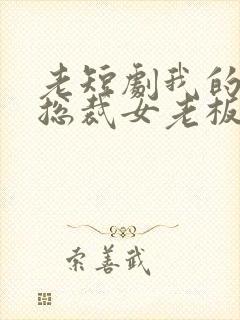 老短劇我的
总裁女老板
索善武